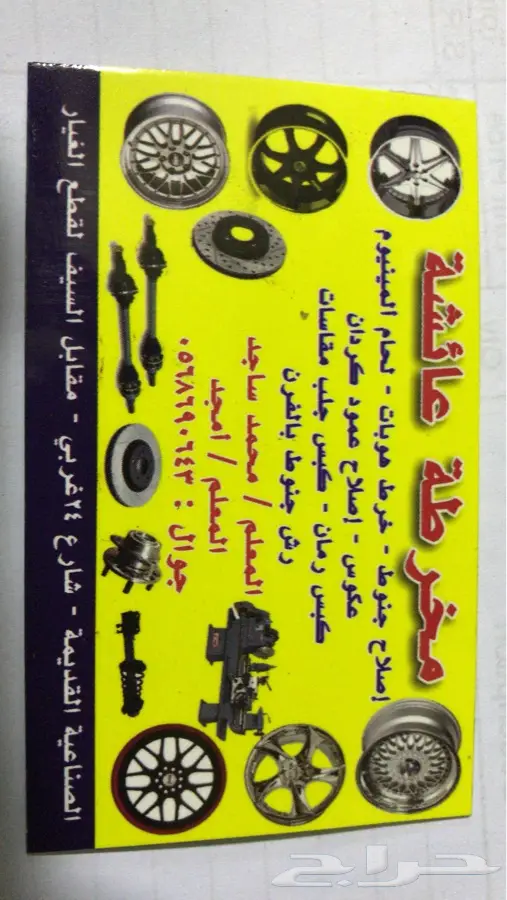 مخرطة عائشة
إصلاح جنوط - خرط هوبات - لحام المينيوم
عكوس - إصلاح عمود كردان
كبس رمان - كبس جلب مقاسات
رش جنوط بالفرن
المعلم / محمد ساجد
المعلم / امجد
جوال : ٠٥٦٨٦٩٠٦٤٣
الصناعية القديمة - شارع ٢٤ غربي - مقابل السيف لقطع الغيار
حراج